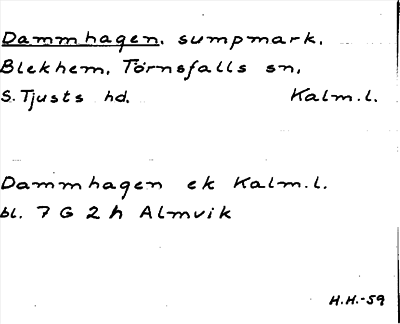 Dammhagen, sumpmark,
Blekhem, Törnsfalls sn,
S. Tjusts hd. Kalm.l.
Dammhagen ek Kalm.l.
bl. 7 G 2 h Almvik
H.H.-59